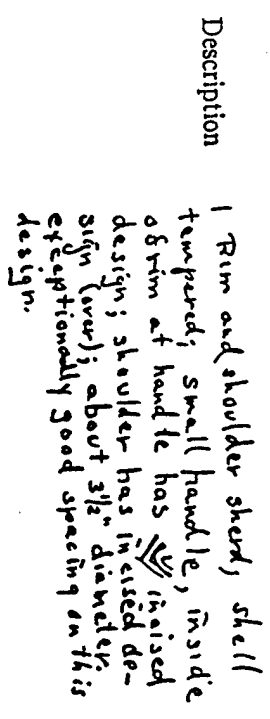 Description
1 Rim and shoulder sherd, shell
tempered; small handle, inside
of rim at handle has incised
design; shoulder has incised de-
sign (over); about 3½" diameter.
exceptionally good spacing on this
design.